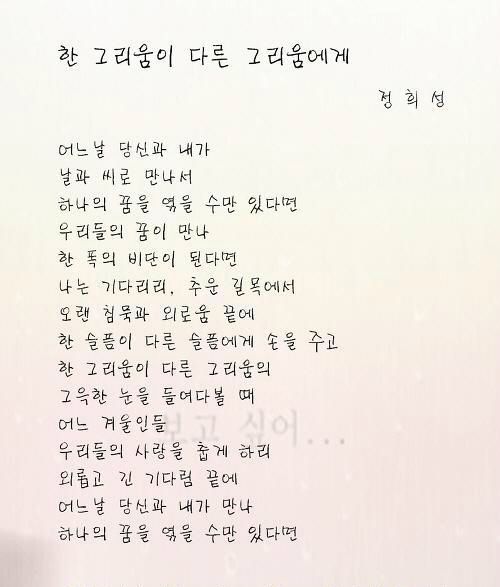 한 그리움이 다른 그리움에게
정희성
어느날 당신과 내가
날과 씨로 만나서
하나의 꿈을 엮을 수만 있다면
우리들의 꿈이 만나
한 폭의 비단이 된다면
나는 기다리리, 추운 길목에서
오랜 침묵과 외로움 끝에
한 슬픔이 다른 슬픔에게 손을 주고
한 그리움이 다른 그리움의
그윽한 눈을 들여다볼 때
어느 겨울인들
보고 싶어...
우리들의 사랑을 춥게 하리
외롭고 긴 기다림 끝에
어느날 당신과 내가 만나
하나의 꿈을 엮을 수만 있다면